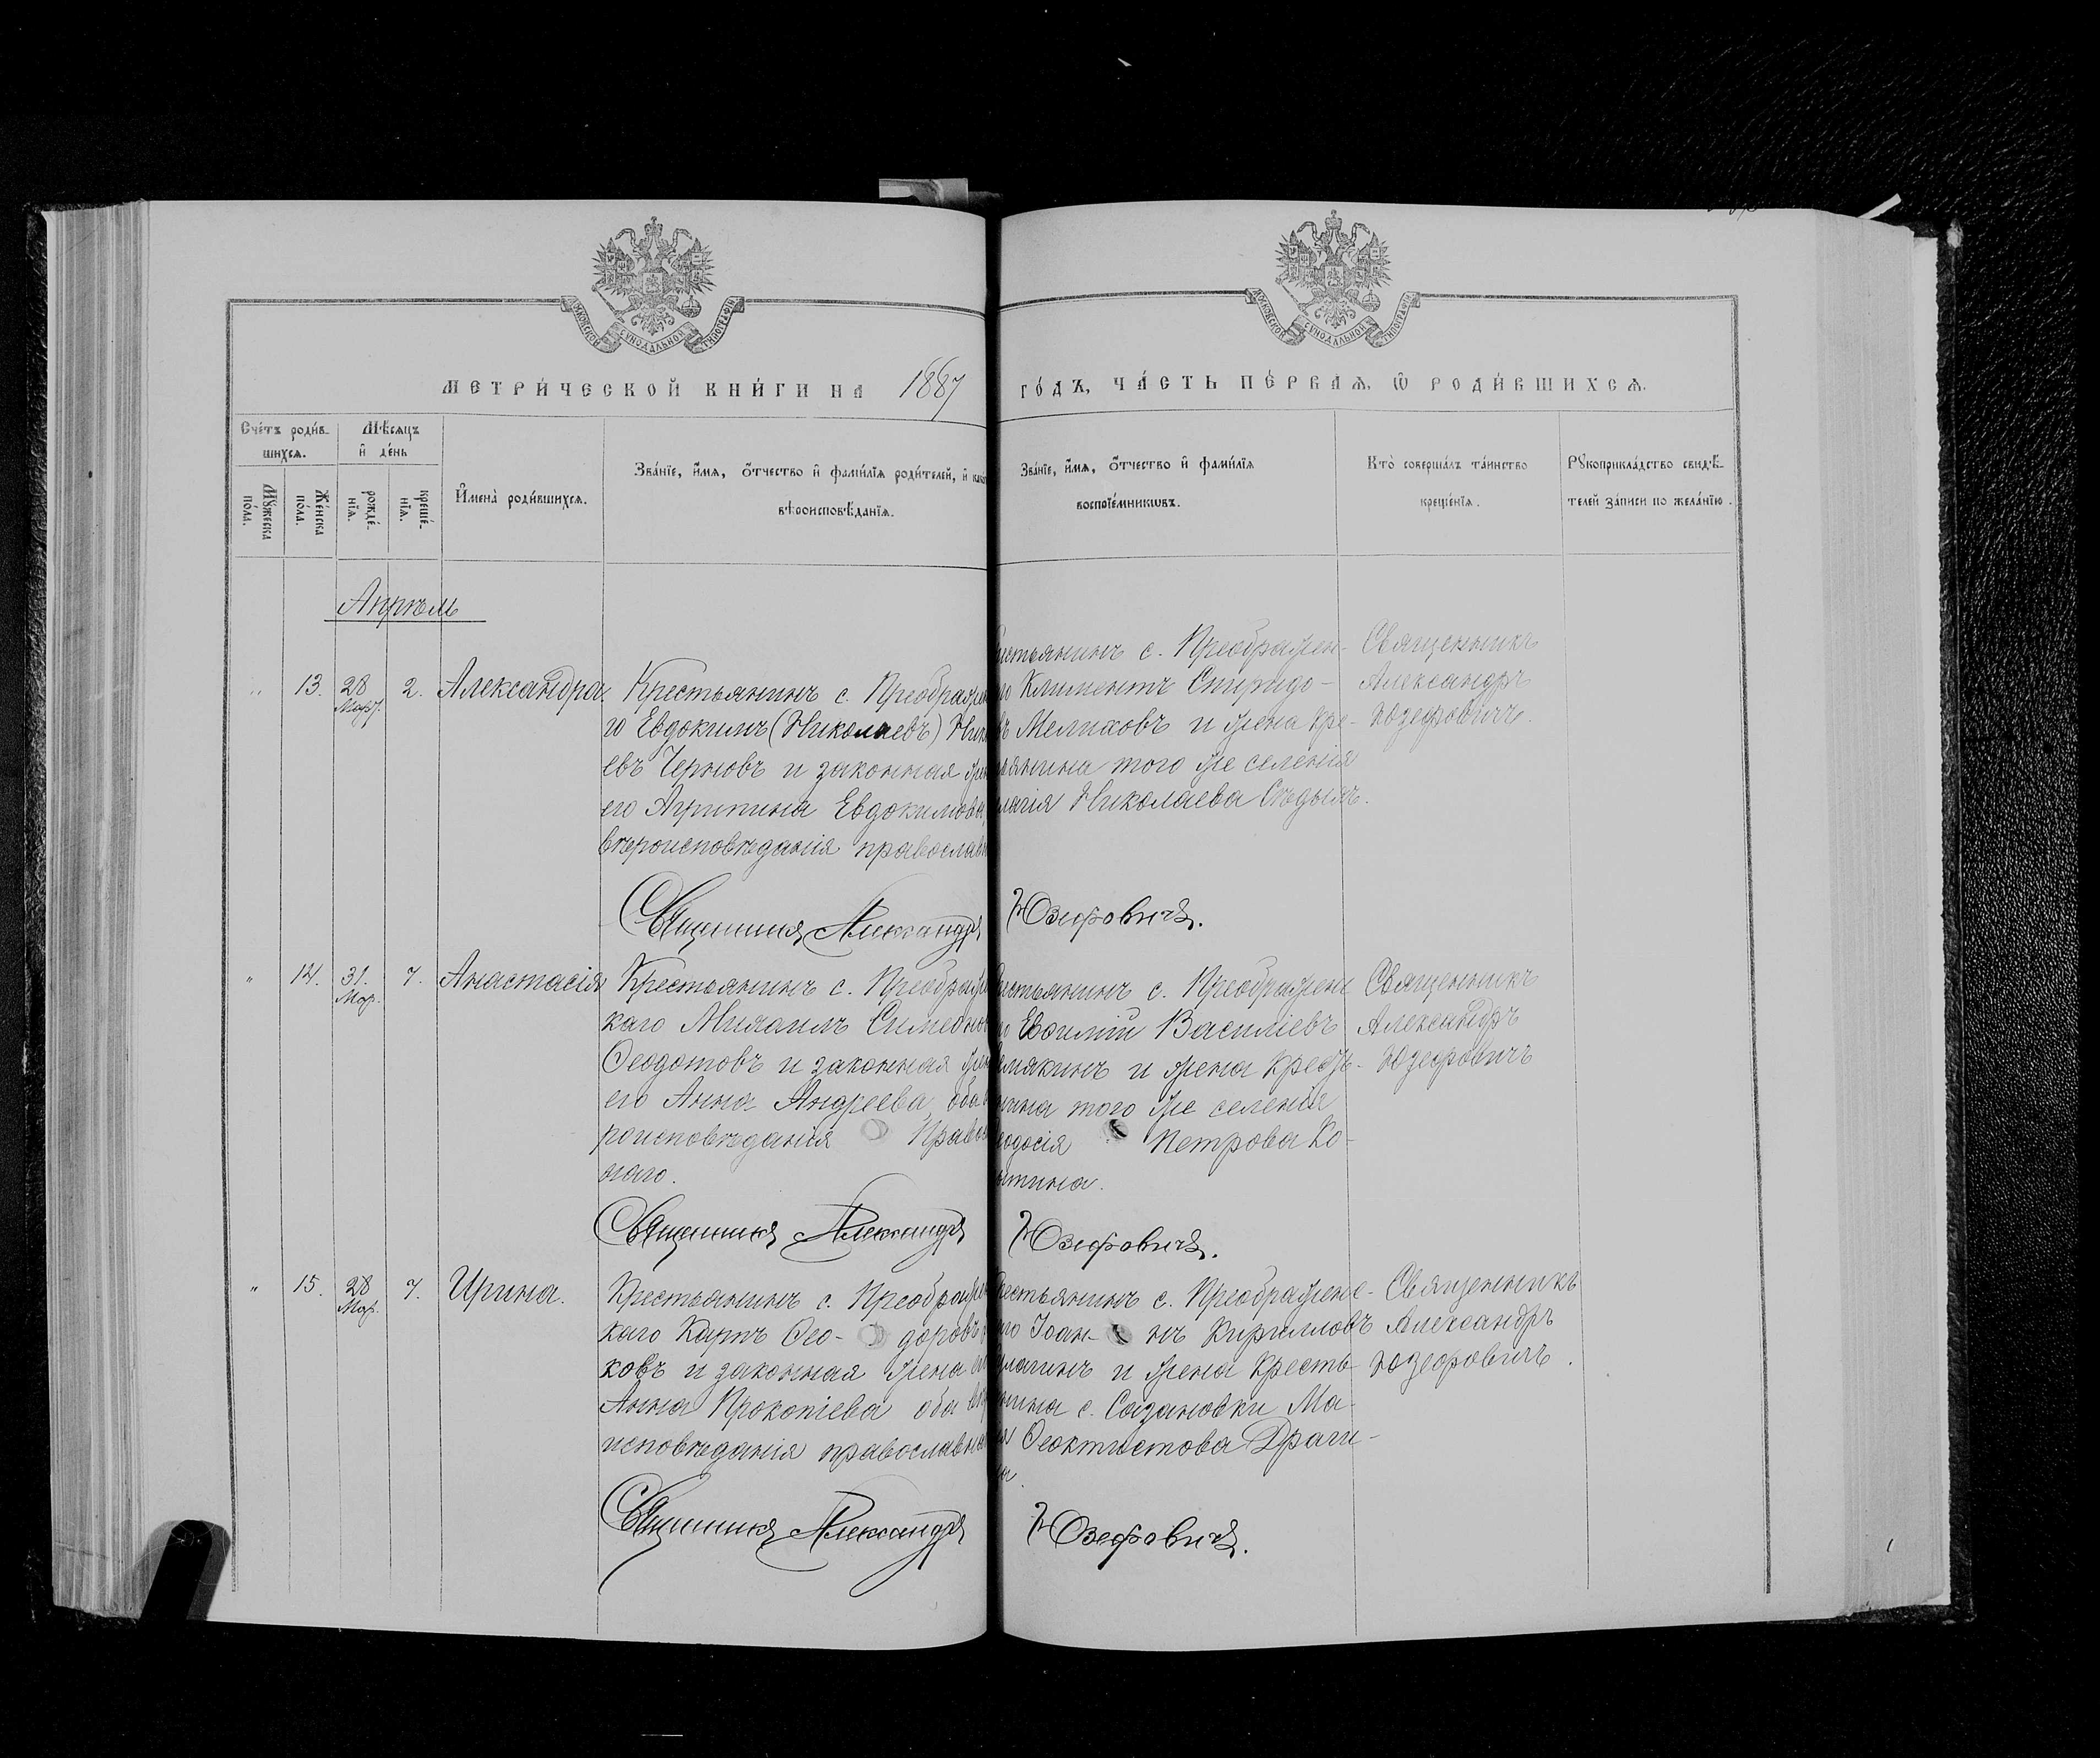 МОСКОВСКОЙ СѴНОДАЛЬНОЙ ТИПОГРАФІИ
МОСКОВСКОЙ СѴНОДАЛЬНОЙ ТИПОГРАФІИ
МЕТРИ́ЧЕСКОЙ КНИ́ГИ НА 1887 ГО́ДЪ, ЧА́СТЬ ПЕ́РВАѦ, Ѽ РОДИ́ВШИХСѦ.
Сче́тъ роди́в-
шихсѧ.
Мꙋ́жеска
по́ла.
Же́нска
по́ла.
Мѣ́сѧцъ
и҆ де́нь
рожде́-
нїѧ.
креще́-
нїѧ.
И҆мена̀ роди́вшихсѧ.
Зва́нїе, и҆́мѧ, ѻ҆́тчество и҆ фами́лїѧ роди́телей, и҆ како
вѣроисповѣ́данїѧ.
Зва́нїе, и҆́мѧ, ѻ҆́тчество и҆ фами́лїѧ
воспрїе́мникѡвъ.
Кто̀ соверша́лъ та́инство
креще́нїѧ.
Рꙋкоприкла́дство свидѣ́-
телей за́писи по жела́нїю.
Апрѣль
" 13. 28 Март. 2. Александра.
Крестьянинъ с. Преображен
го Евдокимъ (Николаевъ) Ник
евъ Черновъ и законная жен
его Агрипина Евдокимова,
вѣроисповѣданія православ
стьянинъ с. Преображен-
го Климентъ Спиридо-
въ Мелиховъ и жена кре-
ьянина того же селенія
Николаева Сѣдыхъ.
Священникъ
Александръ
Юзефовичъ.
Священникъ Александръ Юзефовичъ.
" 14. 31. Мар. 7. Анастасія
Крестьянинъ с. Преображ
каго Михаилъ Симеонов
Ѳеодотовъ и законная жен
его Анна Андреева, оба в
роисповѣданія Правос
наго.
стьянинъ с. Преображен
го Василіевъ
мякинъ и жена кресть-
нина того же селенія
еодосія Петрова Ко-
тина.
Священникъ
Александръ
Юзефовичъ
Священникъ Александръ Юзефовичъ.
" 15. 28 Мар. 7. Ирина.
Крестьянинъ с. Преображен
каго Карпъ Ѳео- доровъ
ковъ и законная жена его
Анна Прокопіева оба вѣр
исповѣданія православна
рестьянинъ с. Преображенс-
го Іоан- нъ Кирилловъ
лагинъ и жена кресть-
нина с. Сазановки Ма-
Ѳеоктистова Драги-
на
Священникъ
Александръ
Юзефовичъ.
Священникъ Александръ Юзефовичъ.